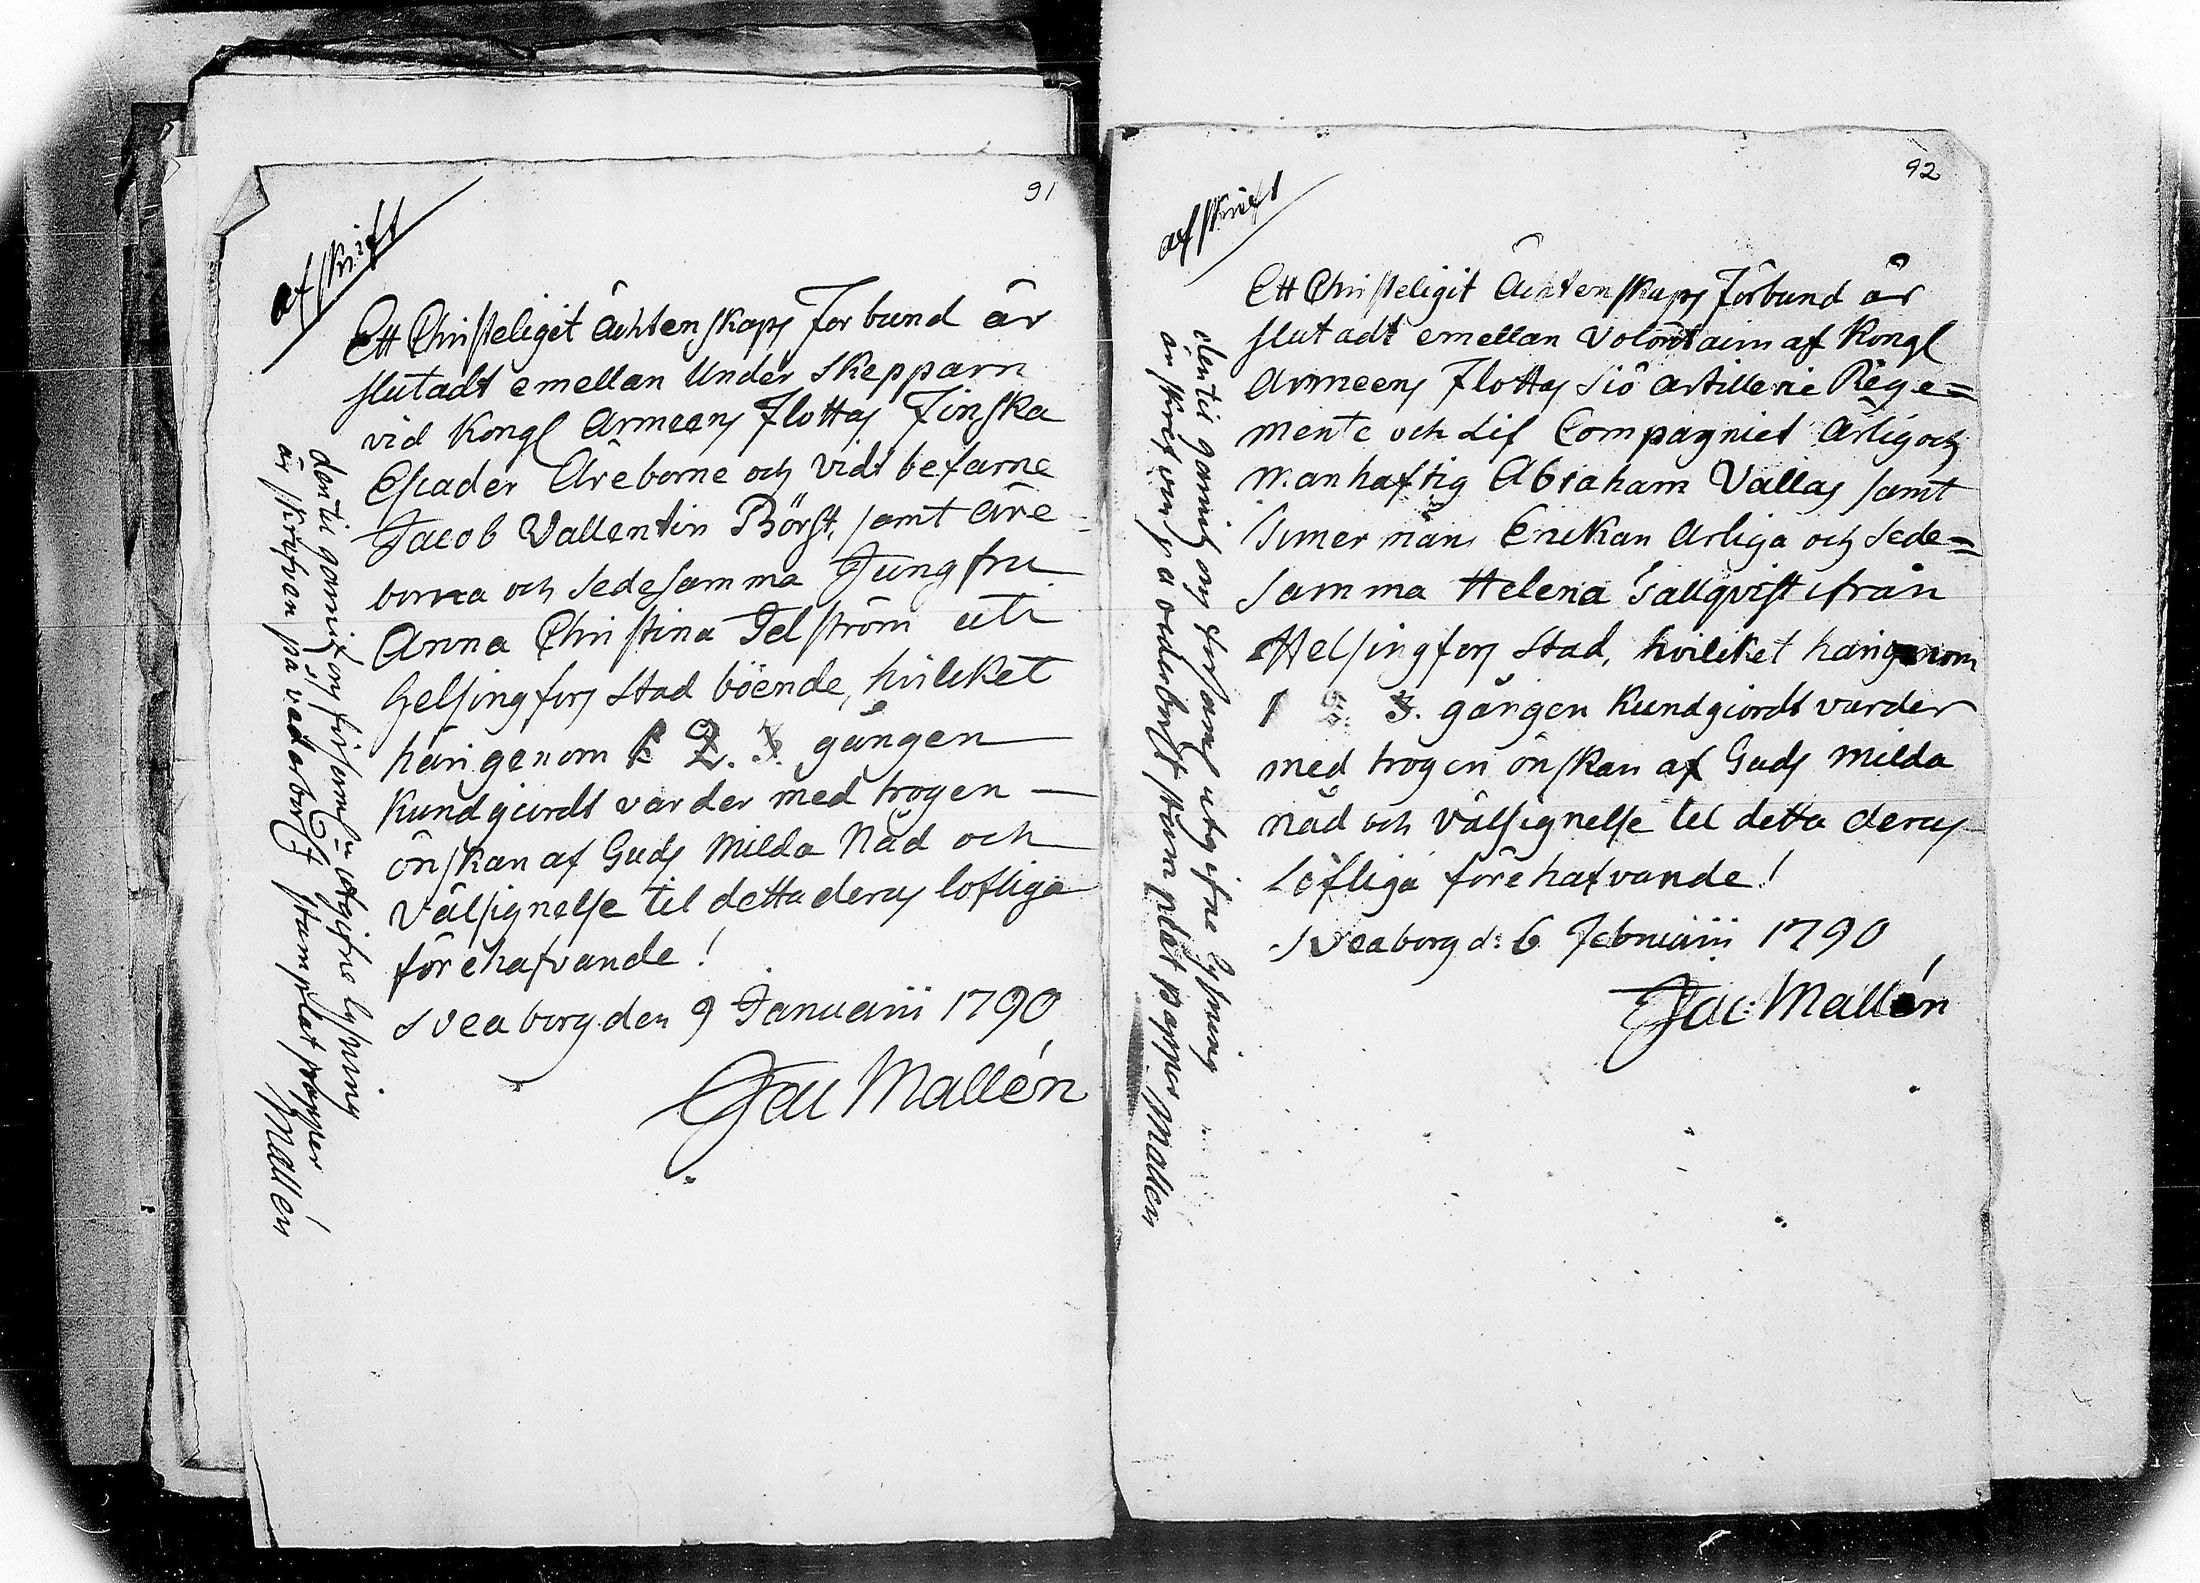 91
afskrift
Ett Christeligit Ächtenskaps Forbund är
slutadt emellan Under Skepparn
vid Kongl Armeens Flottas Finska
Escader Äreborne och vidt befarne
Jacob Vallentin Börst, samt äre-
borna och Sedesamma Jungfru
Anna Christina Telström uti
Helsingfors Stad böende, hvilcket
härigenom 1 2. 3. gången
Kundgiordt varder med trogen
önskan af Guds Milda Nåd och
Välsignelse til detta deras lofliga
förehafvande!
Sveaborg den 9 Januarii 1790
Jac Mallén
är skrifven på vederbörl stamplat papper
Mallén
92
afskrift
Ett Christeligit Ächtenskaps Förbund är
slutadt emellan Volontairn af Kongl
Armeens Flottas Siö Artillerie Rege=
mente och Lif Compagniet Ärlig och
Manhaftig Abraham Vallas samt
Timermäns Enckan Ärliga och Sede=
samma Helena Sallqvist ifrån
Helsingfors Stad, hvilcket härigenom
1 2. 3. gången Kundgiordt varder
med trogen önskan af Guds Milda
nåd och välsignelse til detta deras
Löfliga förehafvande!
Sveaborg d: 6 Februarii 1790
Jac: Mallén
utgifne Lysning
stämplat papper Mallén